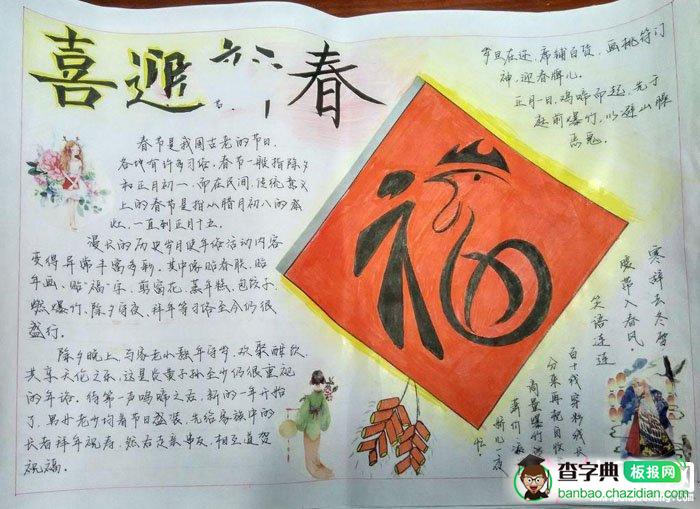 喜迎新春
春节是我国古老的节日。
各地有许多习俗，春节一般指除夕
和正月初一。而在民间，传统意义
上的春节是指从腊月初八的
灶，一直到正月十五。
漫长的历史岁月使年俗活动内容
变得异常丰富多彩。其中像贴春联、贴
年画、贴"福"字、剪窗花、蒸年糕、包饺子、
燃爆竹、除夕守夜、拜年等习俗至今仍很
盛行。
除夕晚上，与家老小熬年守岁，欢聚酣饮，
共享天伦之乐，这是炎黄子孙至今仍很重视
的年俗。待第一声鸡啼之后，新的一年开始
了，男女老少均着节日盛装，先给家族中的
长者拜年祝寿，然后走亲串友，相互道贺
祝福。
岁旦在迩，席铺百货，画桃符门
神，迎春牌儿。
正月一日，鸡啼而起，先于
庭前爆竹，以避山臊
恶鬼。
福
寒辞去冬雪
暖带入春风。
笑语连连
查字典 板报网
banbao.chazidian.com